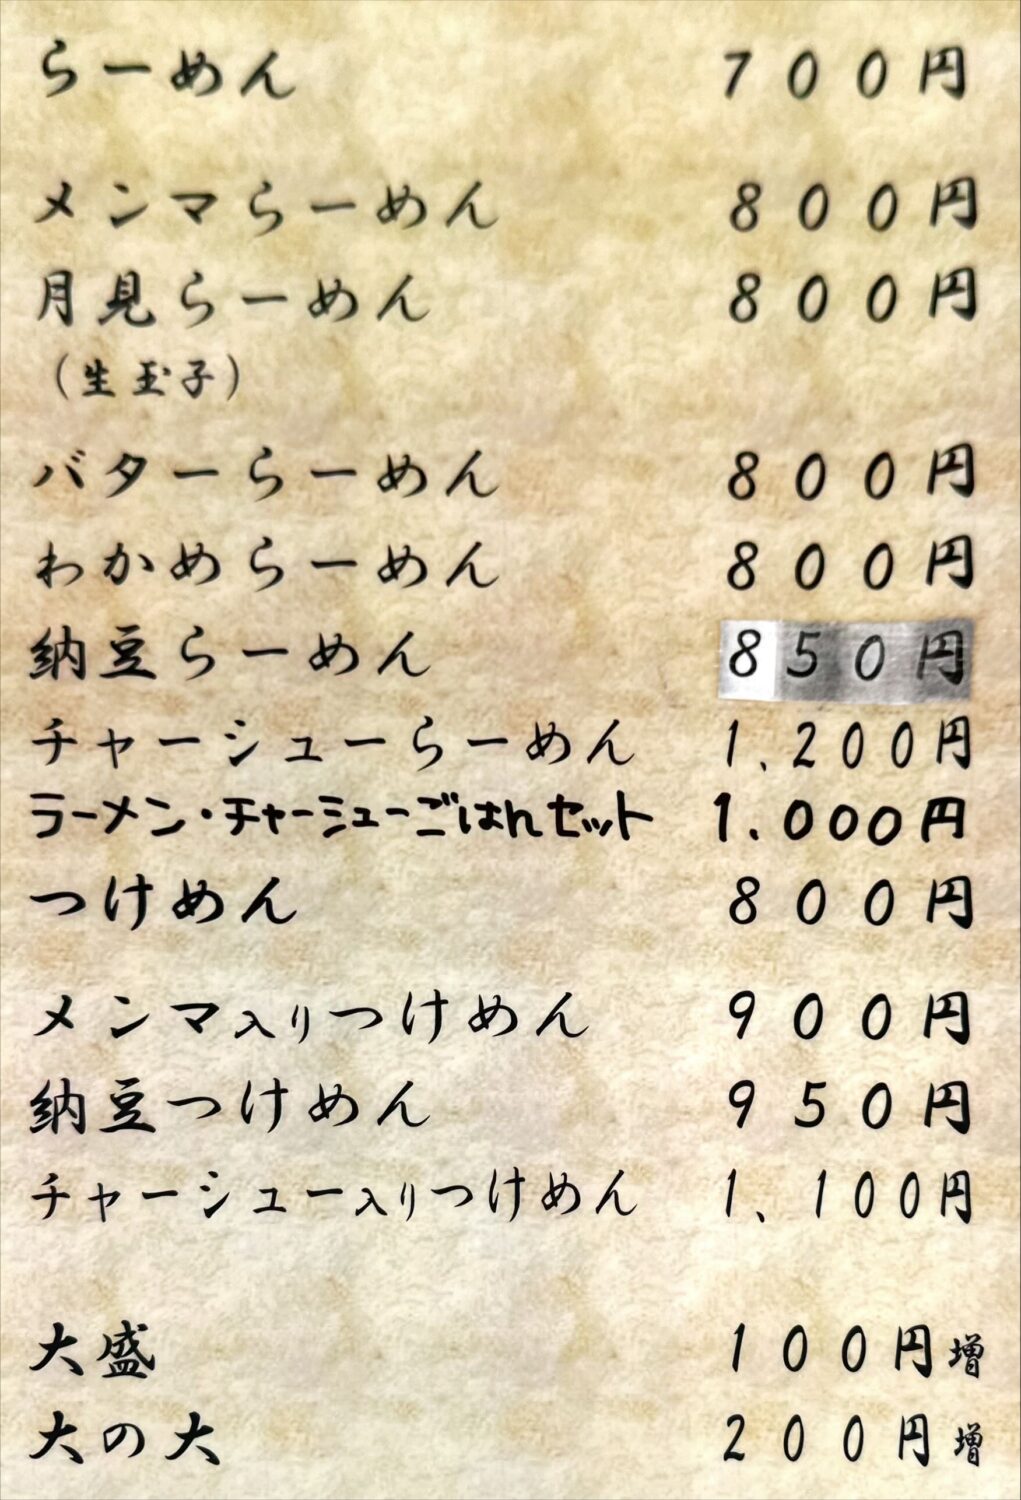 らーめん 700円
メンマらーめん 800円
月見らーめん 800円
（生玉子）
バターらーめん 800円
わかめらーめん 800円
納豆らーめん 850円
チャーシューらーめん 1、200円
ラーメン・チャーシューごはんセット 1.000円
つけめん 800円
メンマ入りつけめん 900円
納豆つけめん 950円
チャーシュー入りつけめん 1、100円
大盛 100円増
大の大 200円増